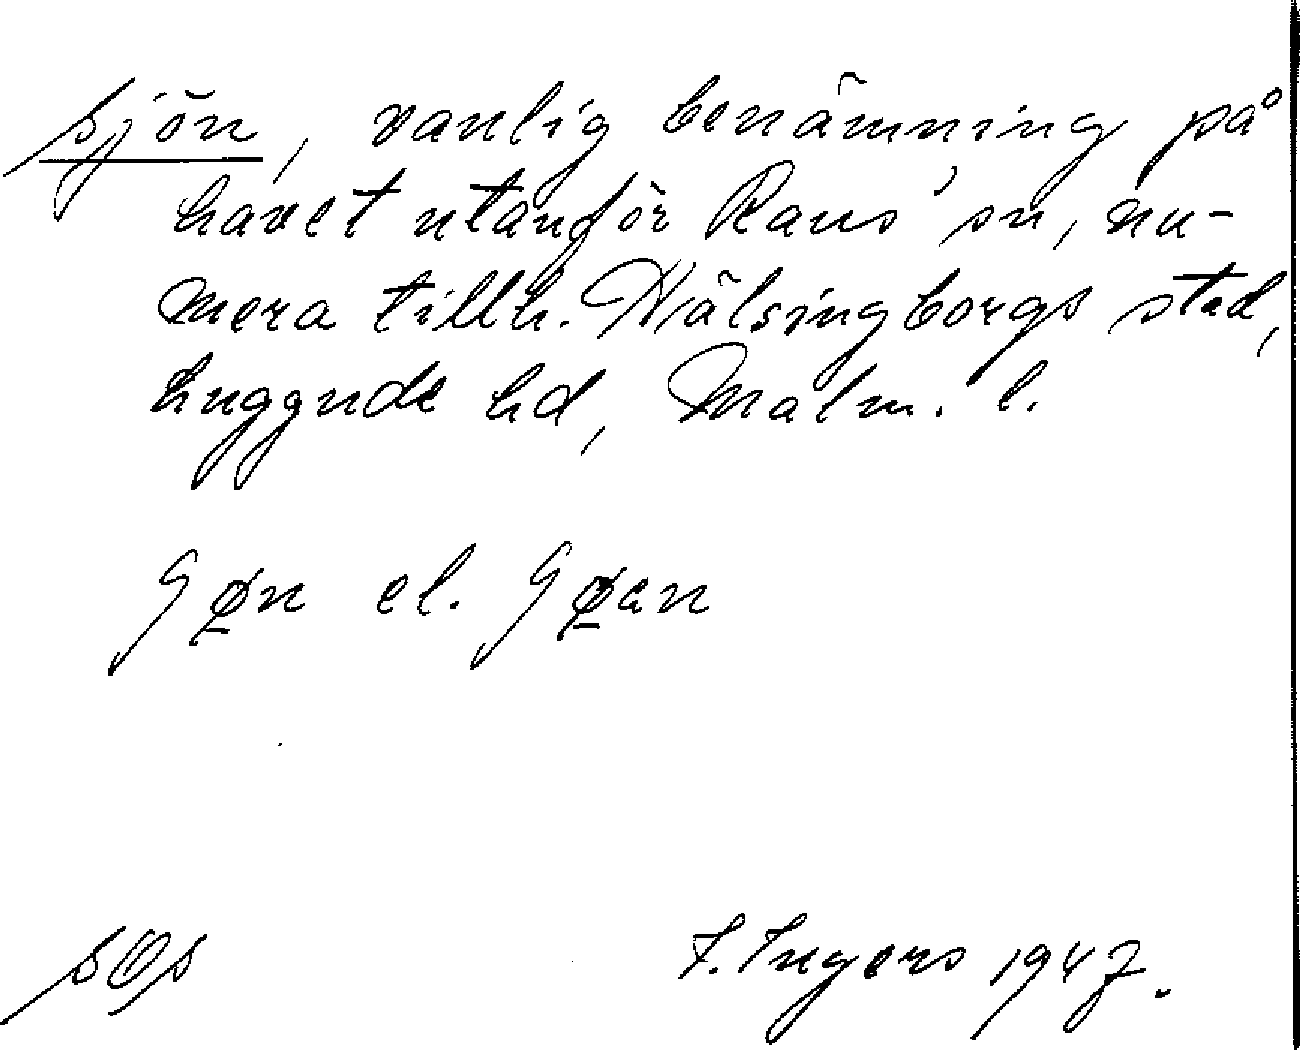 sjön, vanlig benämning på
havet utanför Raus' sn, nu-
mera tillh. Hälsingborgs stad,
Luggude hd, Malm. l.
el.
I. Ingers 1947.